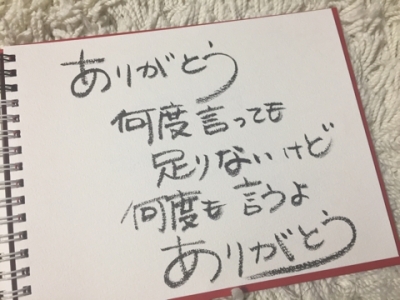 ありがとう
何度言っても
足りないけど
何度も言うよ
ありがとう